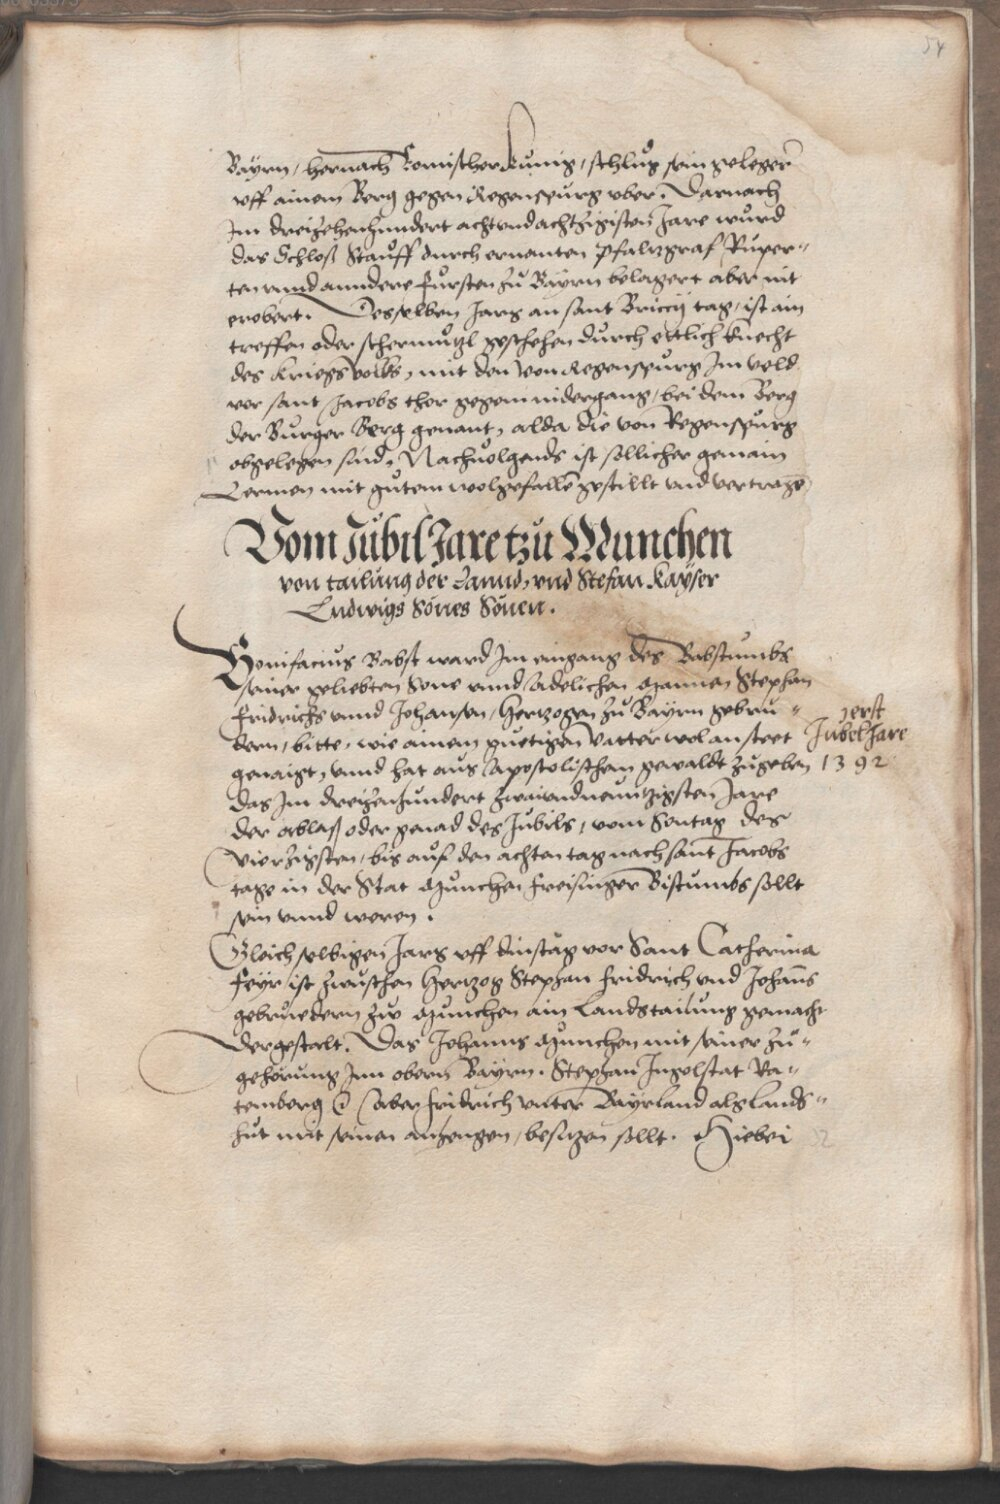 54
Bayrn, hernach Romischer Kunig, schlug sein geleger
uff ainem Berg gegen Regenspurg uber. Darnach
Im dreizehenhundert achtundachtzigisten Jare wurd
das Schloß Stauff durch ernanten Pfaltzgraf Ruper-
ten unnd anndere Fursten zu Bayrn belagert aber nit
erobert. Desselben Jars an sant Briccij tag, ist ain
treffen oder schermutzl geschehen durch ettlich knecht
des kriegsvolks, mit den von Regenspurg Im veld
vor sant Jacobs thor gegem nidergang, bei dem Berg
der Burger Berg genant, alda die von Regenspurg
obgelegen sind. Nachvolgends ist sollicher gemain
Lermen mit gutem wolgefallen gestillt und vertragen
Vom Jubil Jare tzu Munchen
von tailung der Lannd, und Stefan Kayser
Ludwigs Sones Sonen.
Bonifacius Babst ward Im eingang des Babstumbs
seiner geliebten Sone unnd Adelichen Mannen Stephan
Fridrichs unnd Johansen, Hertzogen zu Bayrn gebru-
dern, bitte, wie ainem guetigen Vatter wol ansteet
genaigt, unnd hat aus Apostolischem gewaldt zugeben
Das Im dreizenhundert zwaiundneuntzigsten Jare
der ablaß oder genad des Jubils, vom Sontag des
vierzigsten, bis auf den achten tag nach sant Jacobs
tage in der Stat Munchen Freisinger Bistumbs sollt
sein unnd weren.
1erst
Jubel Jare
1392
Gleich selbigen Jars uff dinstag vor Sant Catherina
feyr ist zwuschen Hertzog Stephan Fridrich und Johanns
gebruedern zue Munchen ain Landstailung gemacht
dergestalt. Das Johanns Munchen mit seiner zu-
gehorung Inn obern Bayrn. Stephan Ingolstat Ra-
temberg Aber Fridrich unter Bayrland als Lands-
hut mit seinen anhengen, besitzen sollt. Hiebei